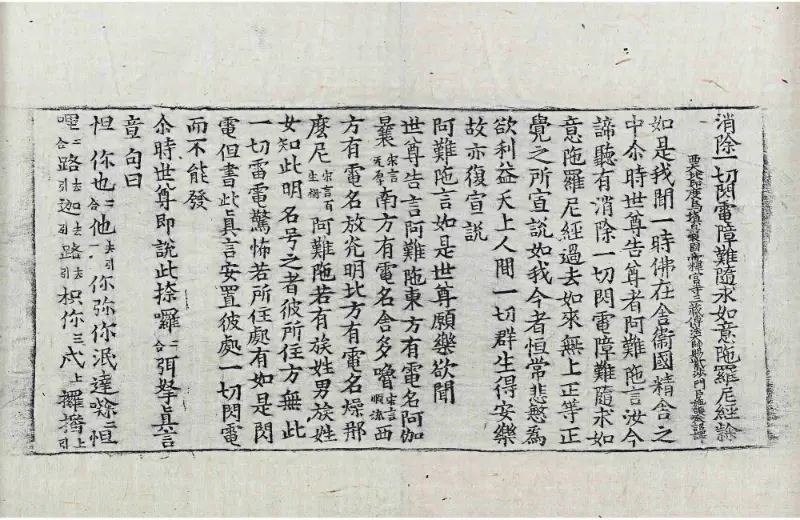 消除一切閃電障難隨求如意陁羅尼經
西天北印度烏填曩國帝釋宮寺三藏傳法大師賜紫沙門臣施護奉詔譯
如是我聞一時佛在舍衛國精舍之
中尒時世尊告尊者阿難陁言汝今
諦聽有消除一切閃電障難隨求如
意陁羅尼經過去如來無上正等正
覺之所宣說如我今者恒常悲愍為
欲利益天上人間一切群生得安樂
故亦復宣說
阿難陁言如是世尊願樂欲聞
世尊告言阿難陁東方有電名阿伽
曩宋言无厚南方有電名舍多嚕宋言順流西
方有電名放光明北方有電名燥那
麼尼宋言百生樹阿難陁若有族姓男族姓
女知此明名号之者彼所住方無此
一切雷電驚怖若所住處有如是閃
電但書此真言安置彼處一切閃電
而不能發
尒時世尊即說此捺囉二合弭拏真言
章句曰
怛你也二合他去引你弥你泯達㘑二恒
哩二合路引去迦去路引枳你三上攞